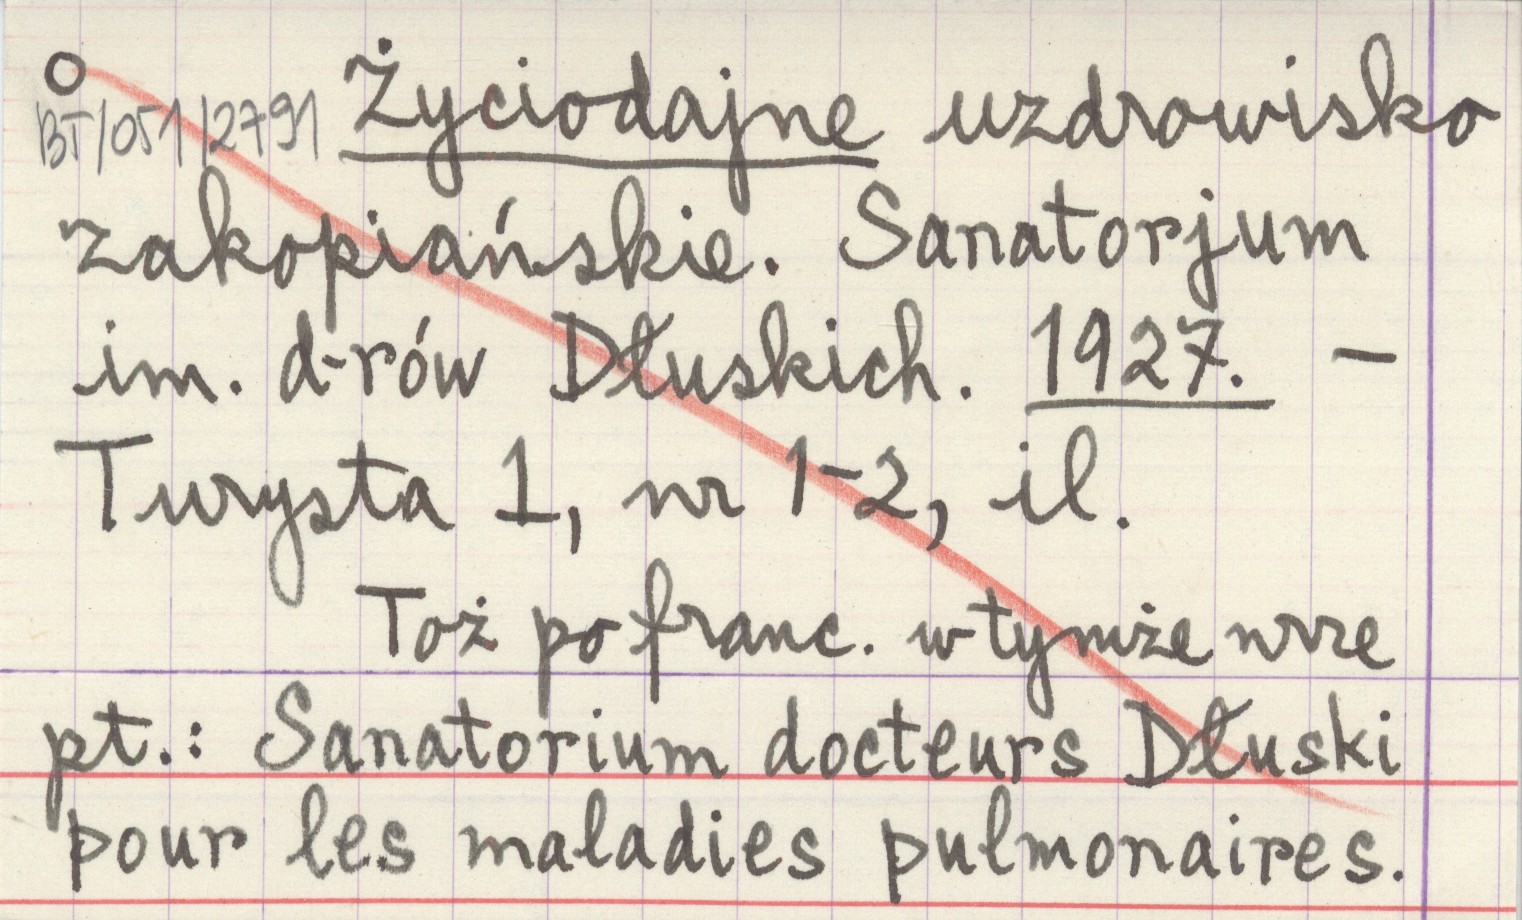 O
BT/051/2791 Życiodajne uzdrowisko
zakopiańskie. Sanatorjum
im. d-rów Dłuskich. 1927. –
Turysta 1, nr 1-2, il.
Toż po franc. w tymże nrze
pt.: Sanatorium docteurs Dłuski
pour les maladies pulmonaires.